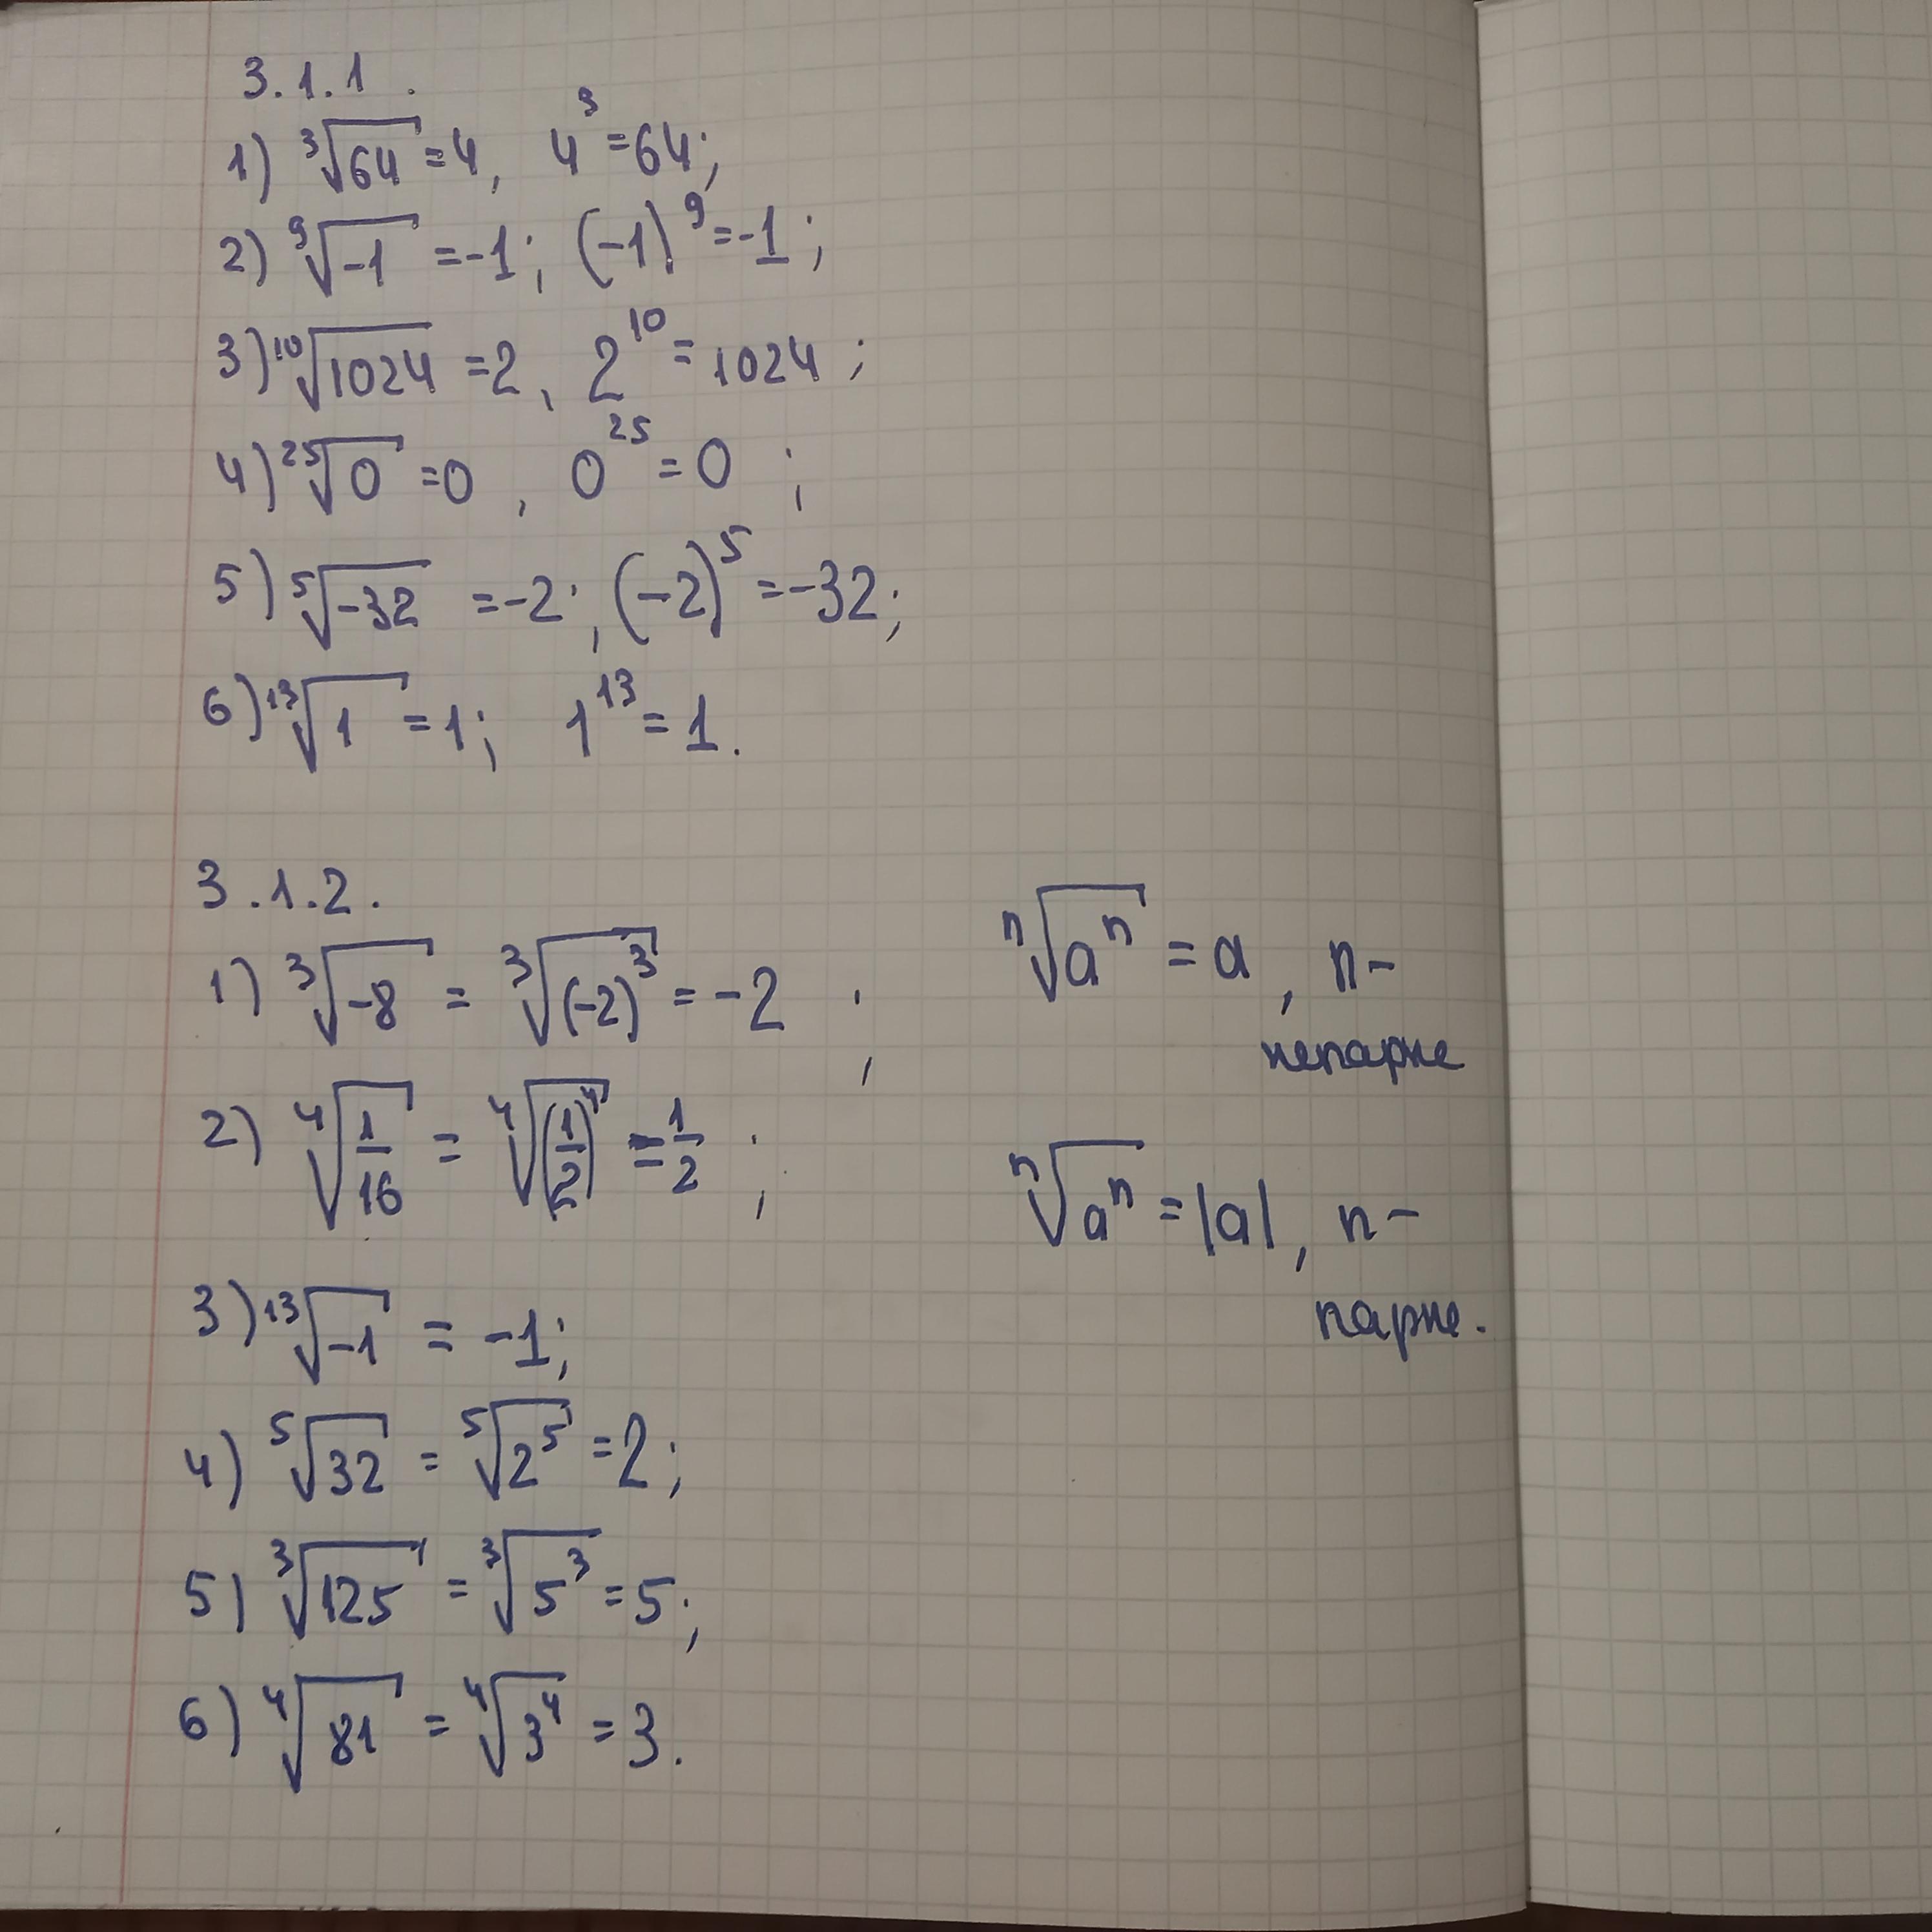 3.1.1.
1) ∛64 = 4, 4³ = 64;
2) ⁹√-1 = -1; (-1)⁹ = -1;
3) ¹⁰√1024 = 2, 2¹⁰ = 1024;
4) ²⁵√0 = 0, 0²⁵ = 0;
5) ⁵√-32 = -2; (-2)⁵ = -32;
6) ¹³√1 = 1; 1¹³ = 1.
3.1.2.
1) ∛-8 = ∛(-2)³ = -2;
2) ⁴√(1/16) = ⁴√(1/2)⁴ = 1/2;
3) ¹³√-1 = -1;
4) ⁵√32 = ⁵√2⁵ = 2;
5) ∛125 = ∛5³ = 5;
6) ⁴√81 = ⁴√3⁴ = 3.
ⁿ√aⁿ = a, n -
непарне
ⁿ√aⁿ = |a|, n -
парне.